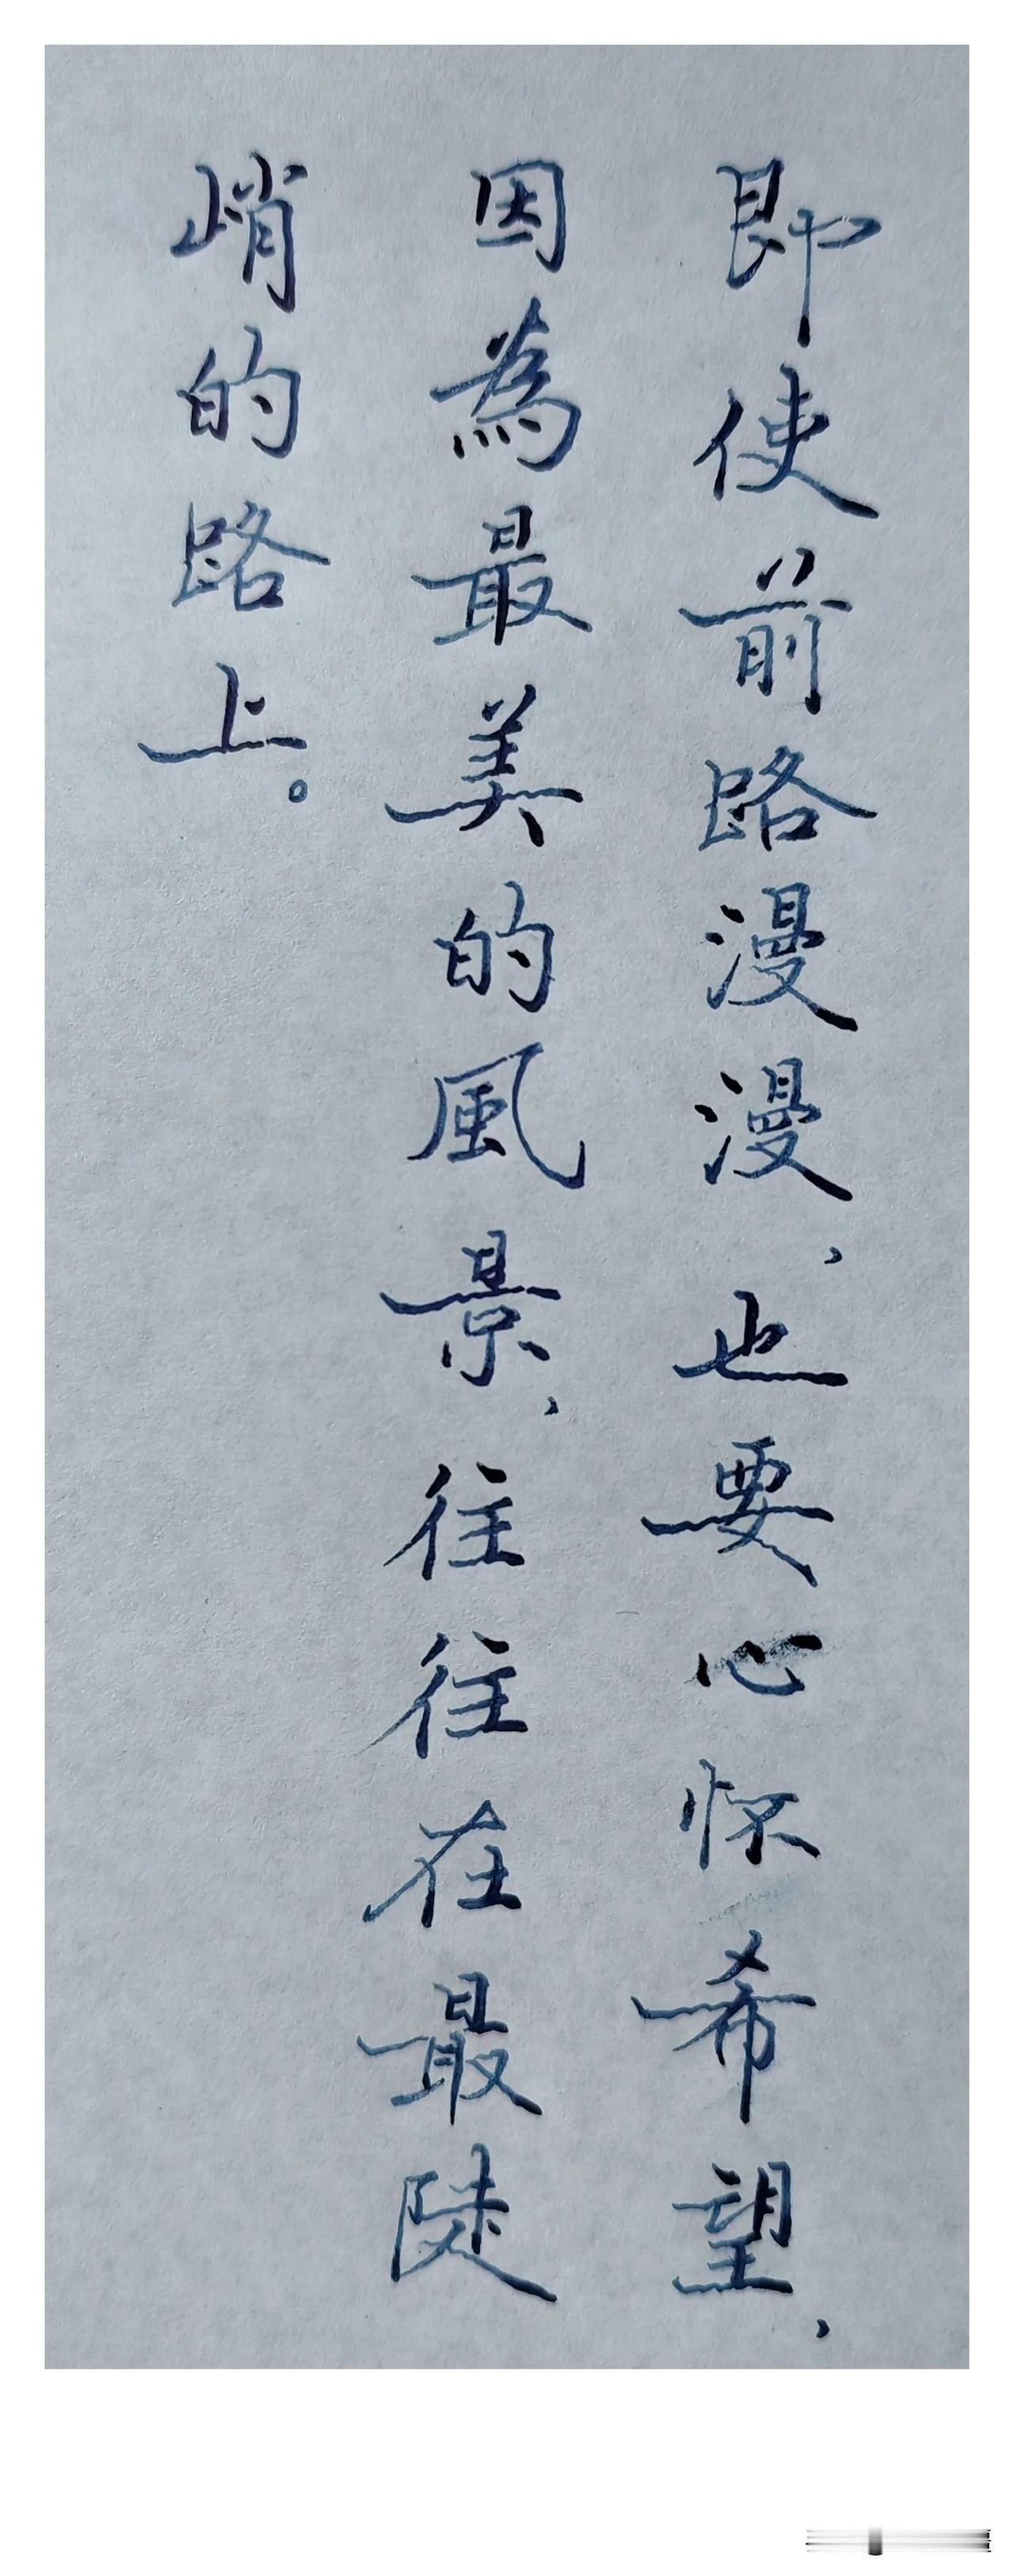 即使前路漫漫，也要心怀希望，
因為最美的風景，往往在最陡
峭的路上。